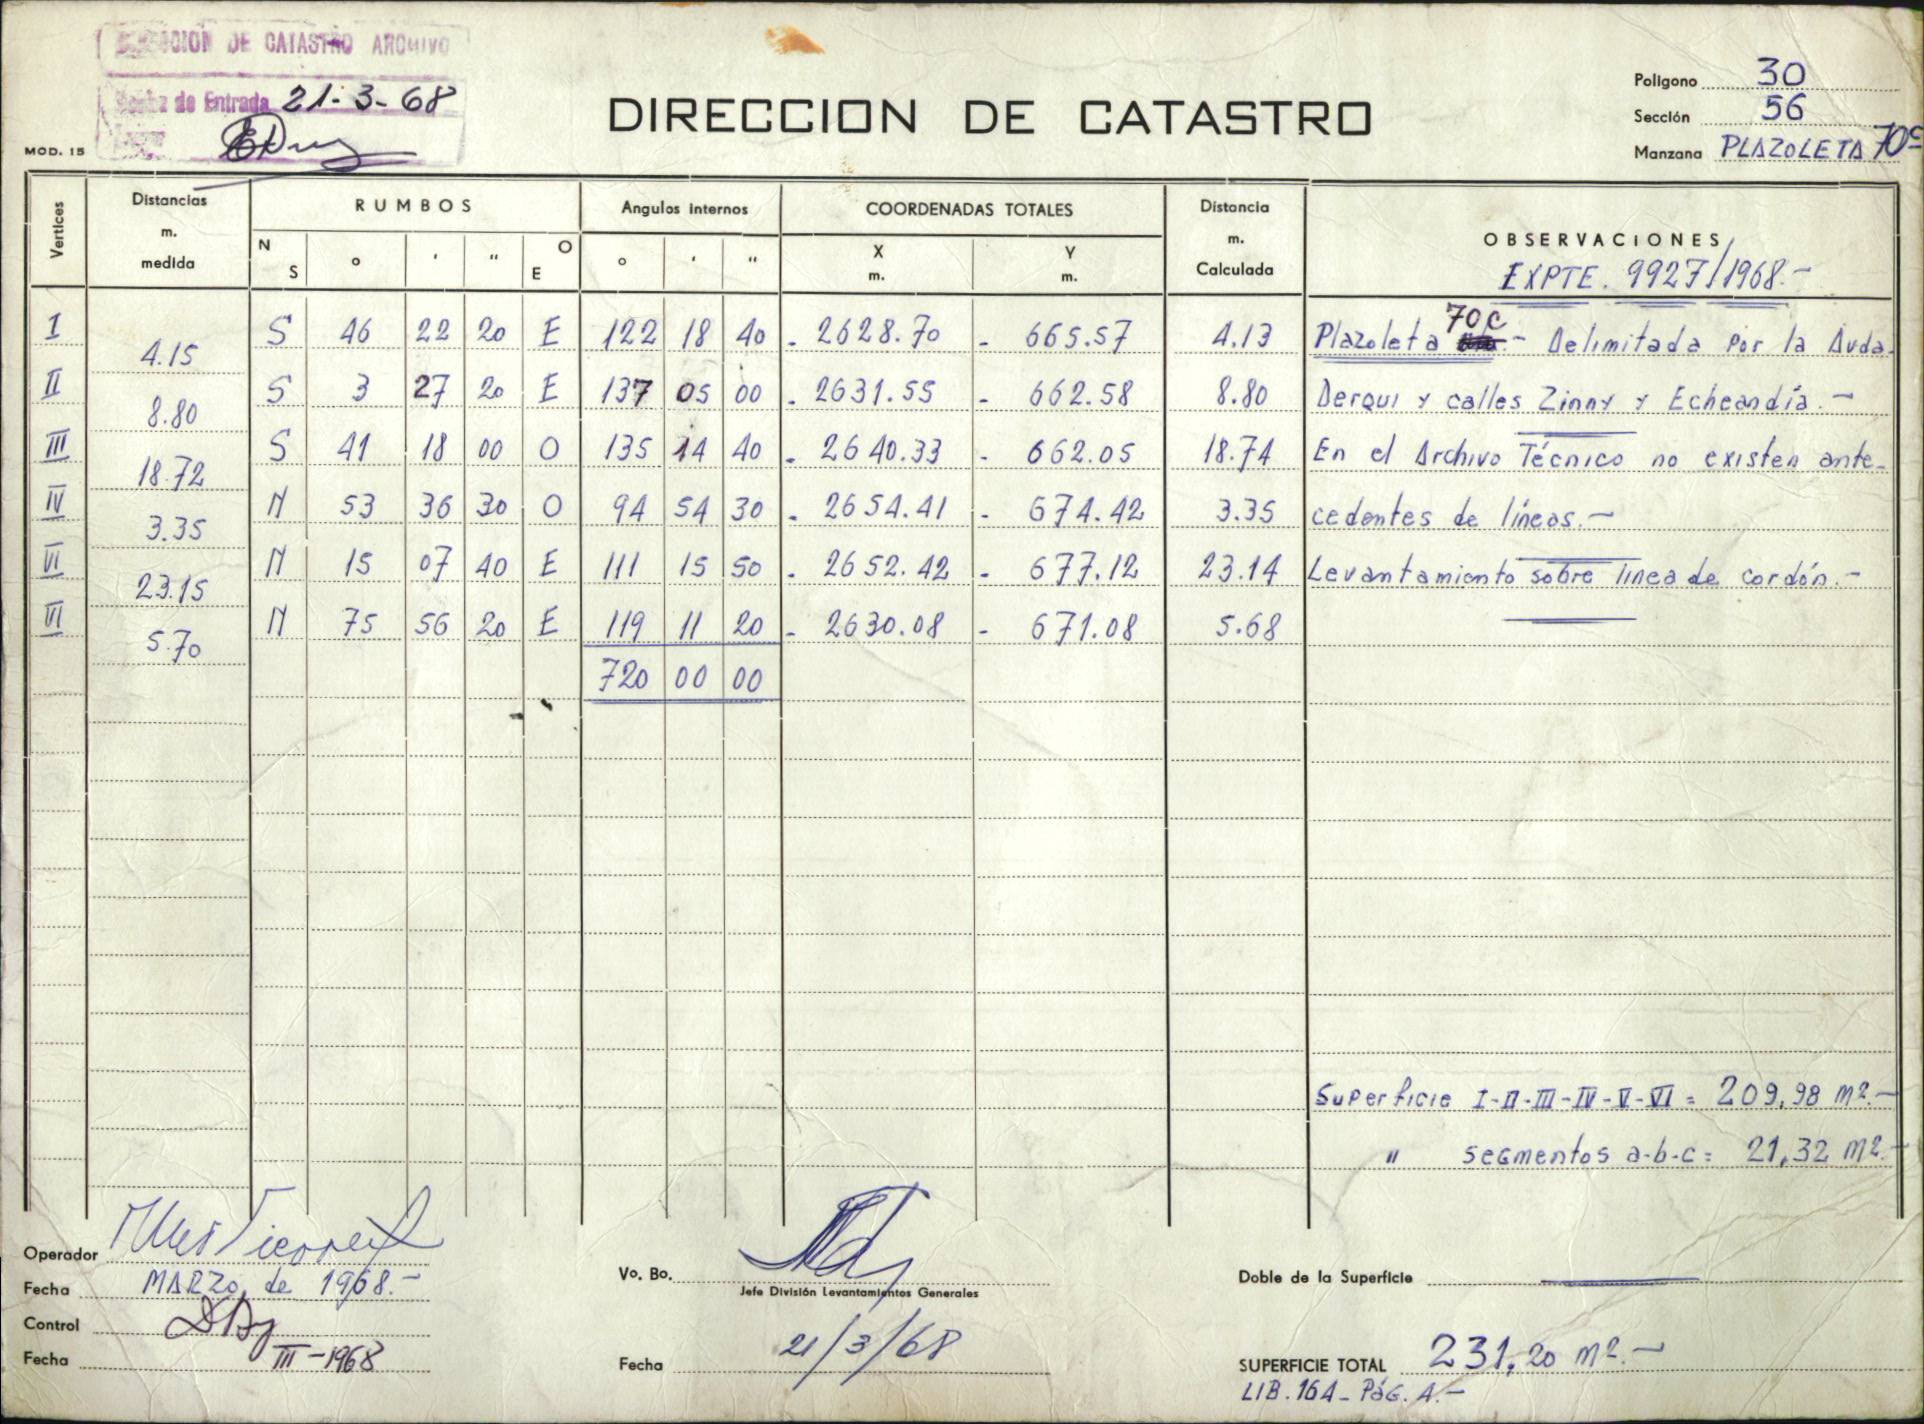 DIRECCION DE CATASTRO ARCHIVO
Fecha de Entrada 21-3-68
MOD. 15
DIRECCION DE CATASTRO
Poligono 30
Sección 56
Manzana PLAZOLETA 70c
Vertices Distancias m. medida RUMBOS Angulos internos COORDENADAS TOTALES Distancia m. Calculada OBSERVACIONES
N S ° ' " O E ° ' " X m. Y m. EXPTE. 9927/1968.-
I 4.15 S 46 22 20 E 122 18 40 - 2628.70 - 665.57 4.13 Plazoleta 70c.- Delimitada por la Avda.
II 8.80 S 3 27 20 E 137 05 00 - 2631.55 - 662.58 8.80 Derqui y calles Zinny y Echeandía.-
III 18.72 S 41 18 00 O 135 14 40 - 2640.33 - 662.05 18.74 En el Archivo Técnico no existen ante-
IV 3.35 N 53 36 30 O 94 54 30 - 2654.41 - 674.42 3.35 cedentes de líneas.-
VI 23.15 N 15 07 40 E 111 15 50 - 2652.42 - 677.12 23.14 Levantamiento sobre línea de cordón.-
VI 5.70 N 75 56 20 E 119 11 20 - 2630.08 - 671.08 5.68
720 00 00
Superficie I-II-III-IV-V-VI = 209,98 m2.-
" segmentos a-b-c = 21,32 m2.-
Operador
Fecha MARZO de 1968.-
Control
Fecha III-1968
Vo. Bo.
Jefe División Levantamientos Generales
Fecha 21/3/68
Doble de la Superficie
SUPERFICIE TOTAL 231,20 m2.-
LIB. 16A - PÁG. 4.-